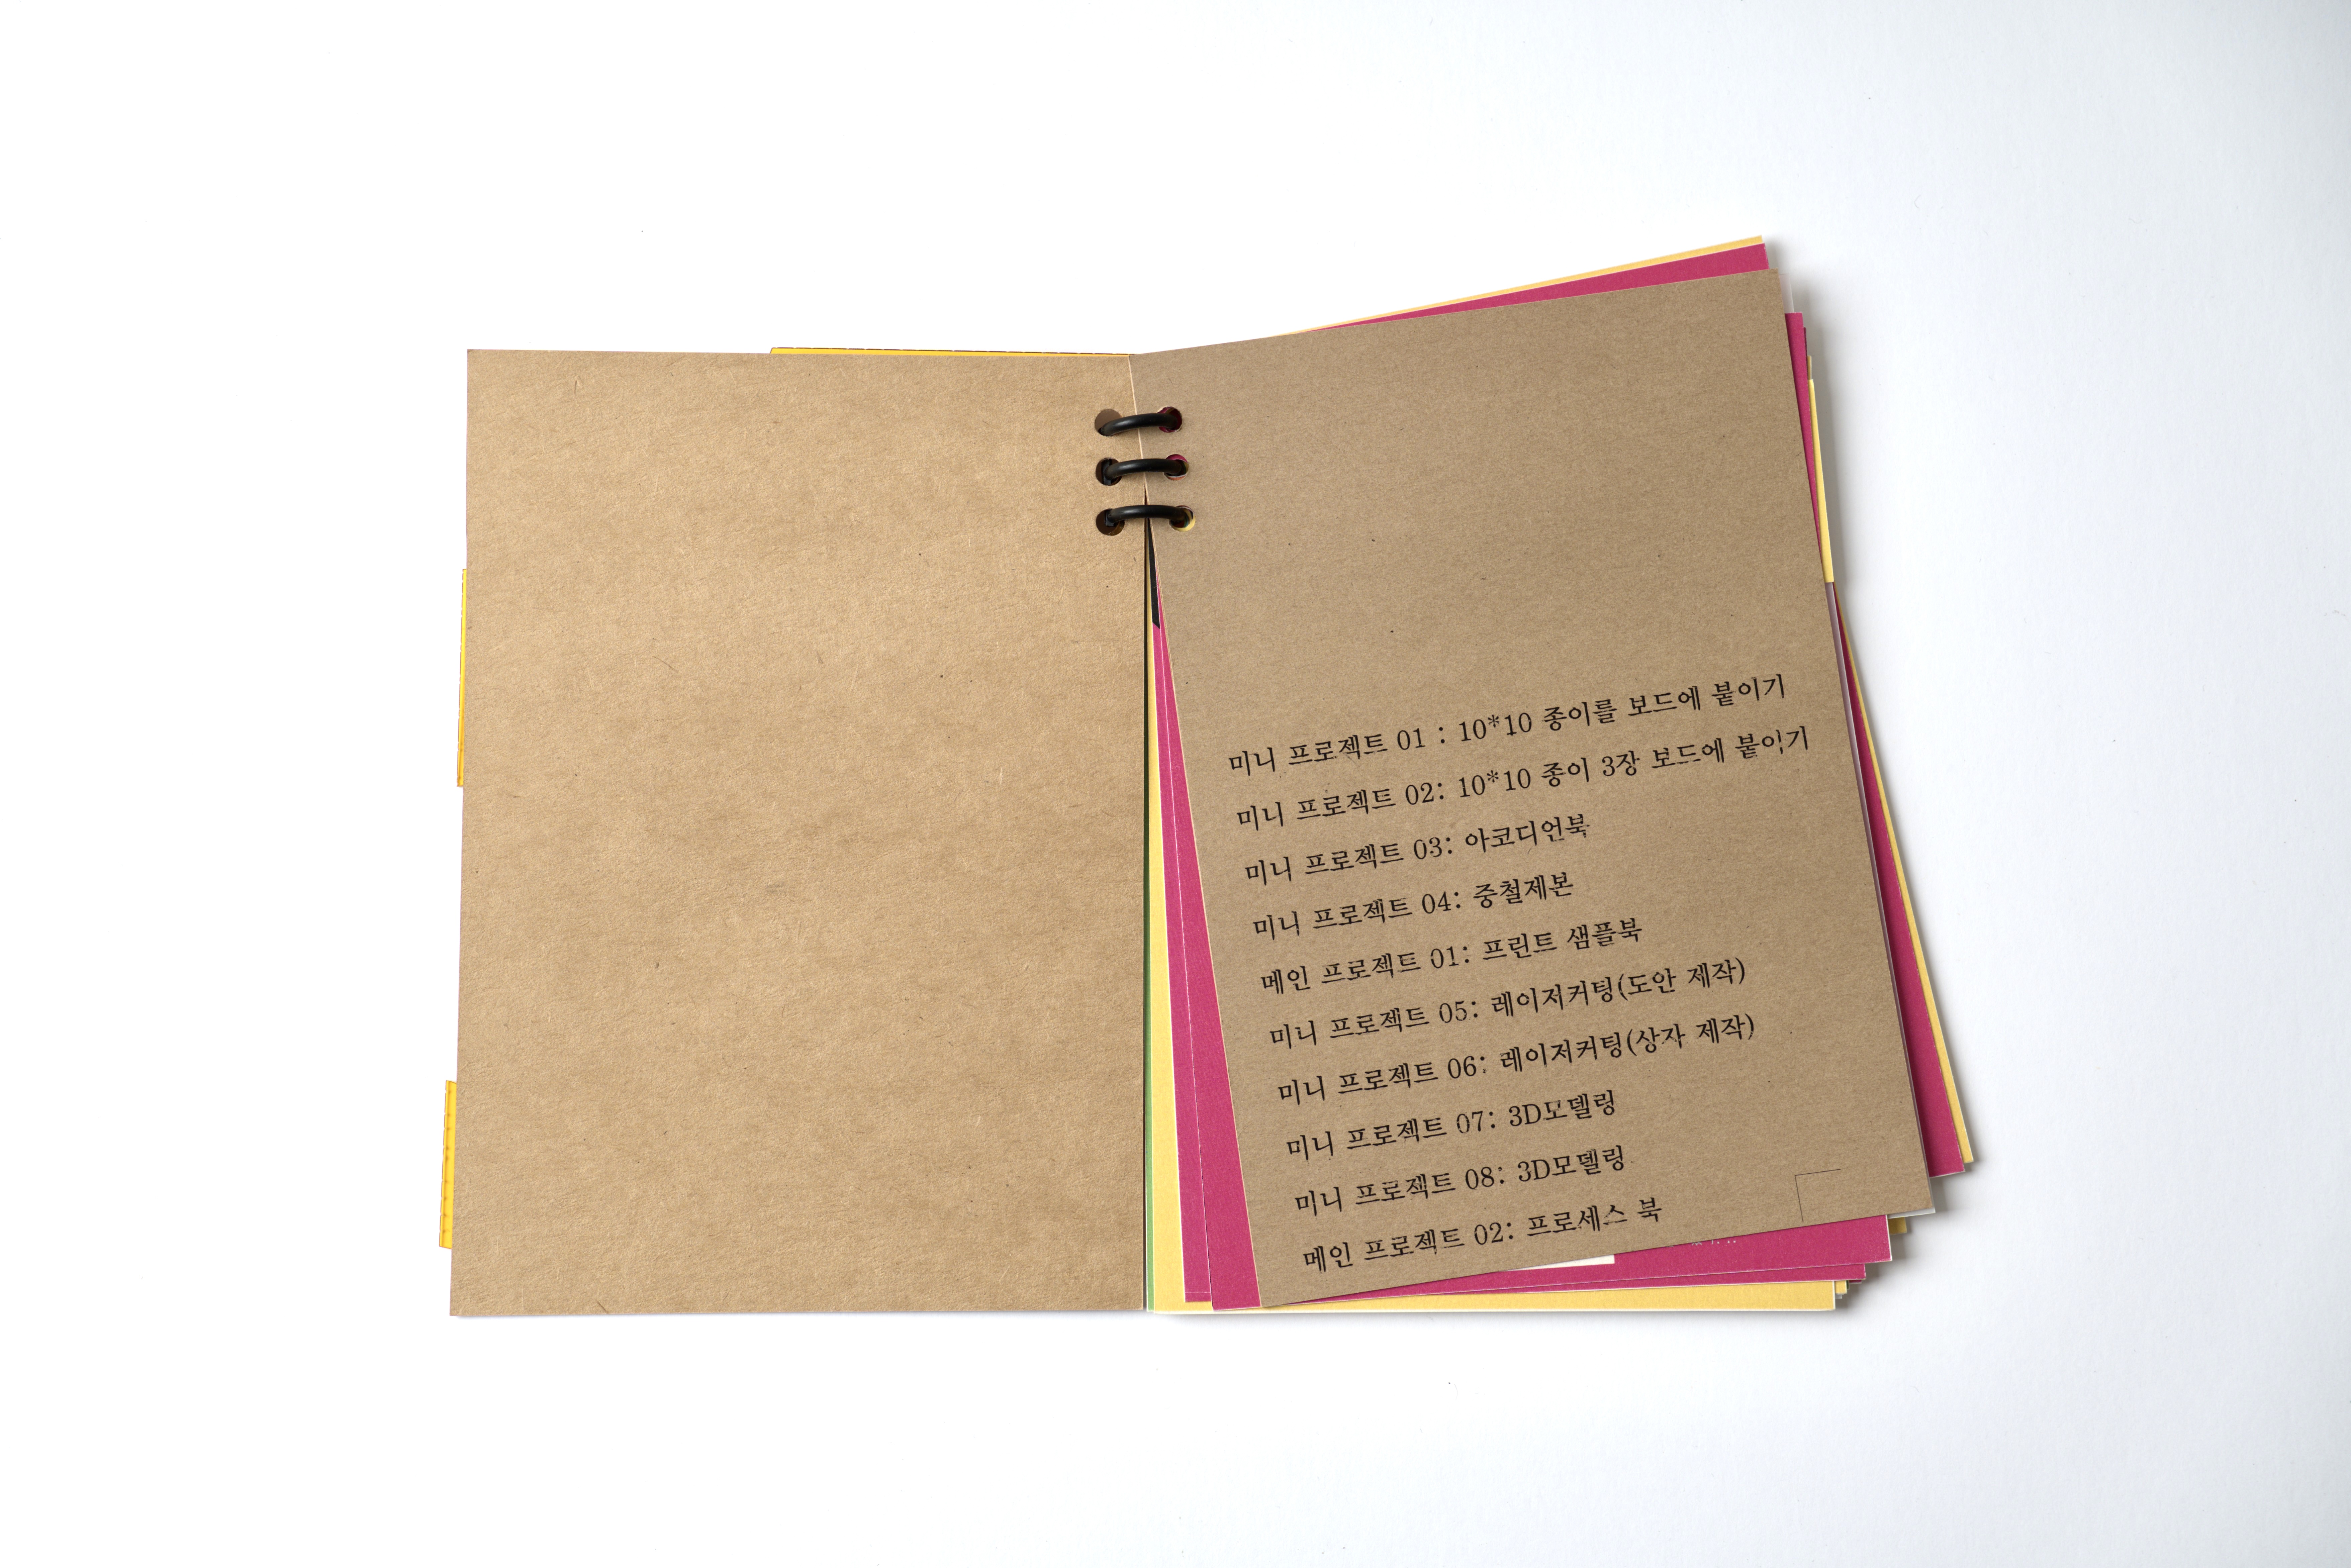 미니 프로젝트 01 : 10*10 종이를 보드에 붙이기
미니 프로젝트 02: 10*10 종이 3장 보드에 붙이기
미니 프로젝트 03: 아코디언북
미니 프로젝트 04: 중철제본
메인 프로젝트 01: 프린트 샘플북
미니 프로젝트 05: 레이저커팅(도안 제작)
미니 프로젝트 06: 레이저커팅(상자 제작)
미니 프로젝트 07: 3D모델링
미니 프로젝트 08: 3D모델링
메인 프로젝트 02: 프로세스 북